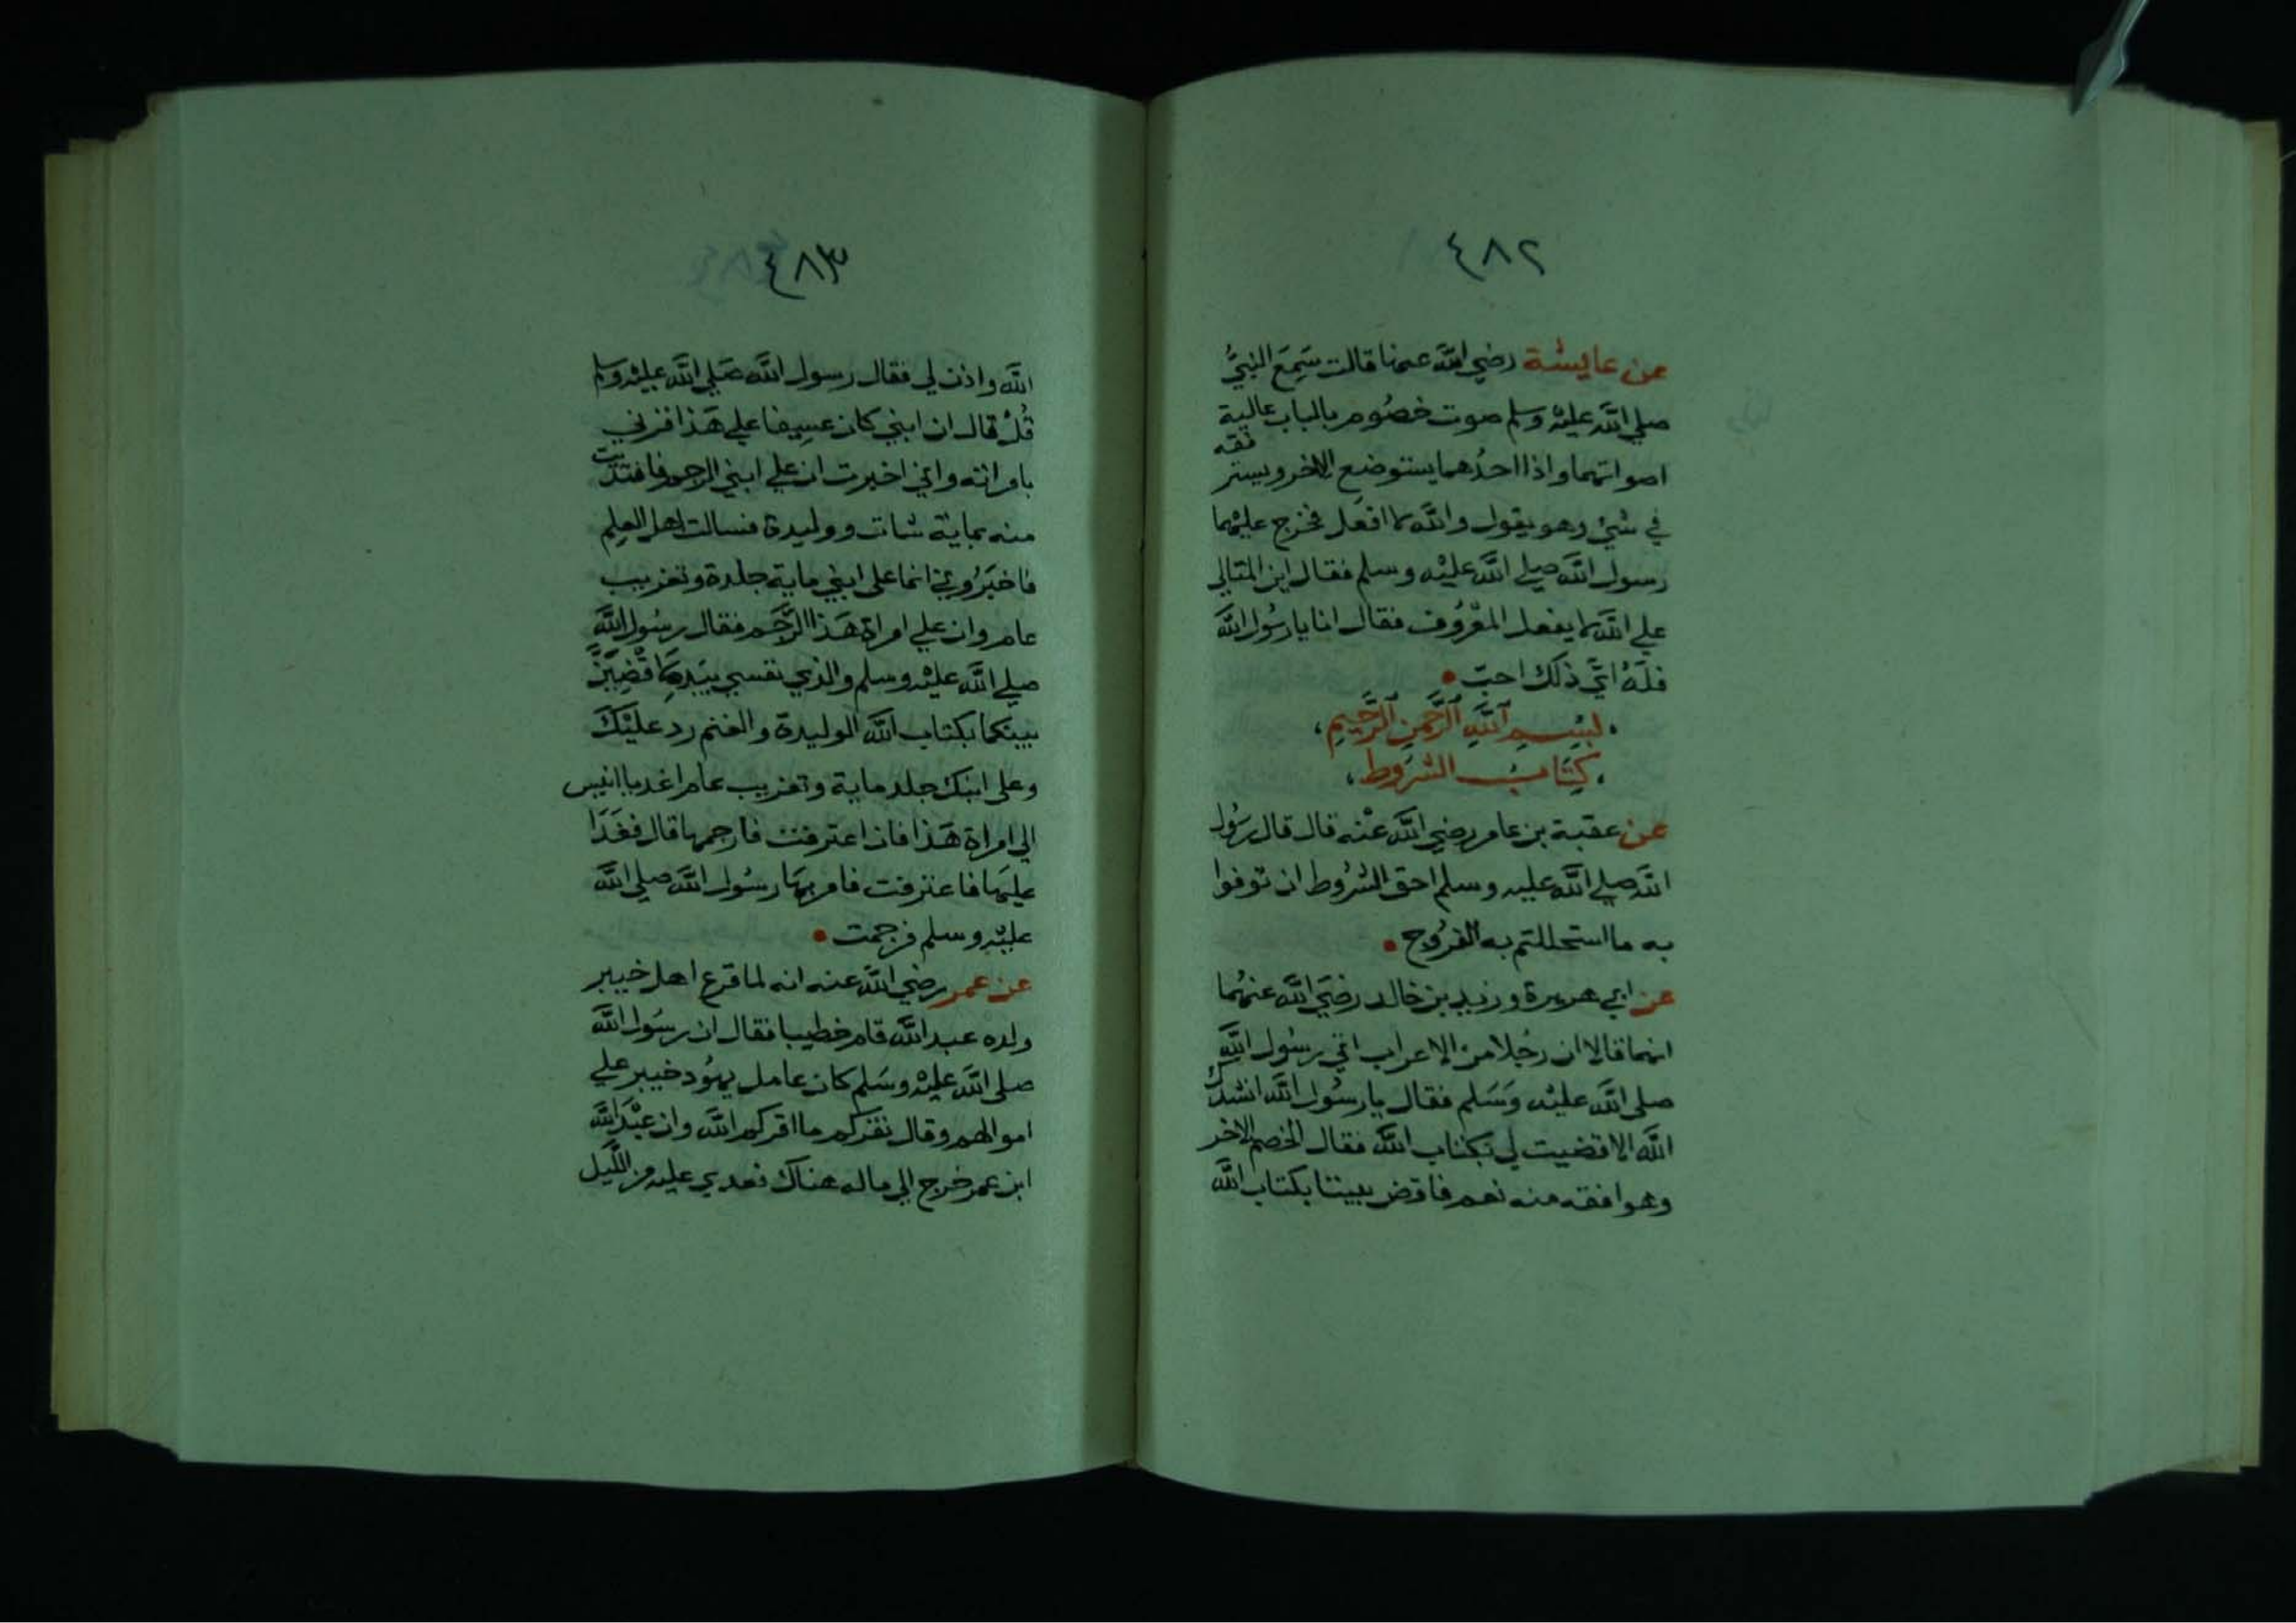 ٤٨٢
عن عايشة رضي الله عنها قالت سَمِعَ النبيُّ
صلي الله عليه وسلم صوت خصُوم بالباب عالية
اصواتهما واذا احدُهما يستوضع الاخر ويستر
فقه
في شئ وهو يقول والله لا افعَل فخرج عليهما
رسول الله صلي الله عليْه وسلم فقال اين المتالي
علي الله لا يفعل المعْرُوف فقال انا يا رسُول الله
فلَهُ ايَّ ذلك احبّ
بِسْمِ اللهِ الرَّحْمنِ الرَّحِيمِ
كِتَابُ الشرُوط
عن عقبة بن عامر رضي الله عنْه قال قال رسُول
الله صلي الله عليه وسلم احق الشرُوط ان توفوا
به ما استحللتم به الفرُوج
عن ابي هريرة وزيد بن خالد رضيَ الله عنهُما
انهما قالا ان رجُلا من الاعراب اتي رسُول الله
صلي الله عليْه وَسَلم فقال يا رسُول الله انشدُك
الله الا قضيت لي بكتاب الله فقال الخصم الاخر
وهو افقه منه نعم فاقض بيننا بكتاب الله
٤٨٣
الله واذن لي فقال رسول الله صَلي الله عليْه وسلم
قُلْ قال ان ابني كان عسِيفا علي هَذا فزني
بامراته واني اخبرت ان علي ابني الرجم فافتديت
منه بماية شات ووليدة فسالت اهل العِلم
فاخبَرُوني انما على ابني ماية جلدة وتغريب
عام وان علي امراة هَذا الرَّجَم فقال رسُول الله
صلي الله عليْه وسلم والذي نفسي بيَدِه لاقْضِيَنَّ
بينكما بكتاب الله الوليدة والغنم رد عليْكَ
وعلى ابنك جلد ماية وتغريب عام اغد يا انيس
الي امراة هَذا فان اعترفت فارجمها قال فغَدَا
عليهَا فاعترفت فامر بهَا رسُول الله صلي الله
عليْه وسلم فرجمت
عن عمر رضي الله عنه انه لما قرع اهل خيبر
ولده عبد الله قام خطيبا فقال ان رسُول الله
صلى الله عليْه وسَلم كان عامل يهُود خيبر علي
اموالهم وقال نقركم ما اقركم الله وان عبْدَ الله
ابن عمر خرج الي ماله هناك فعدي عليه من اللَّيل